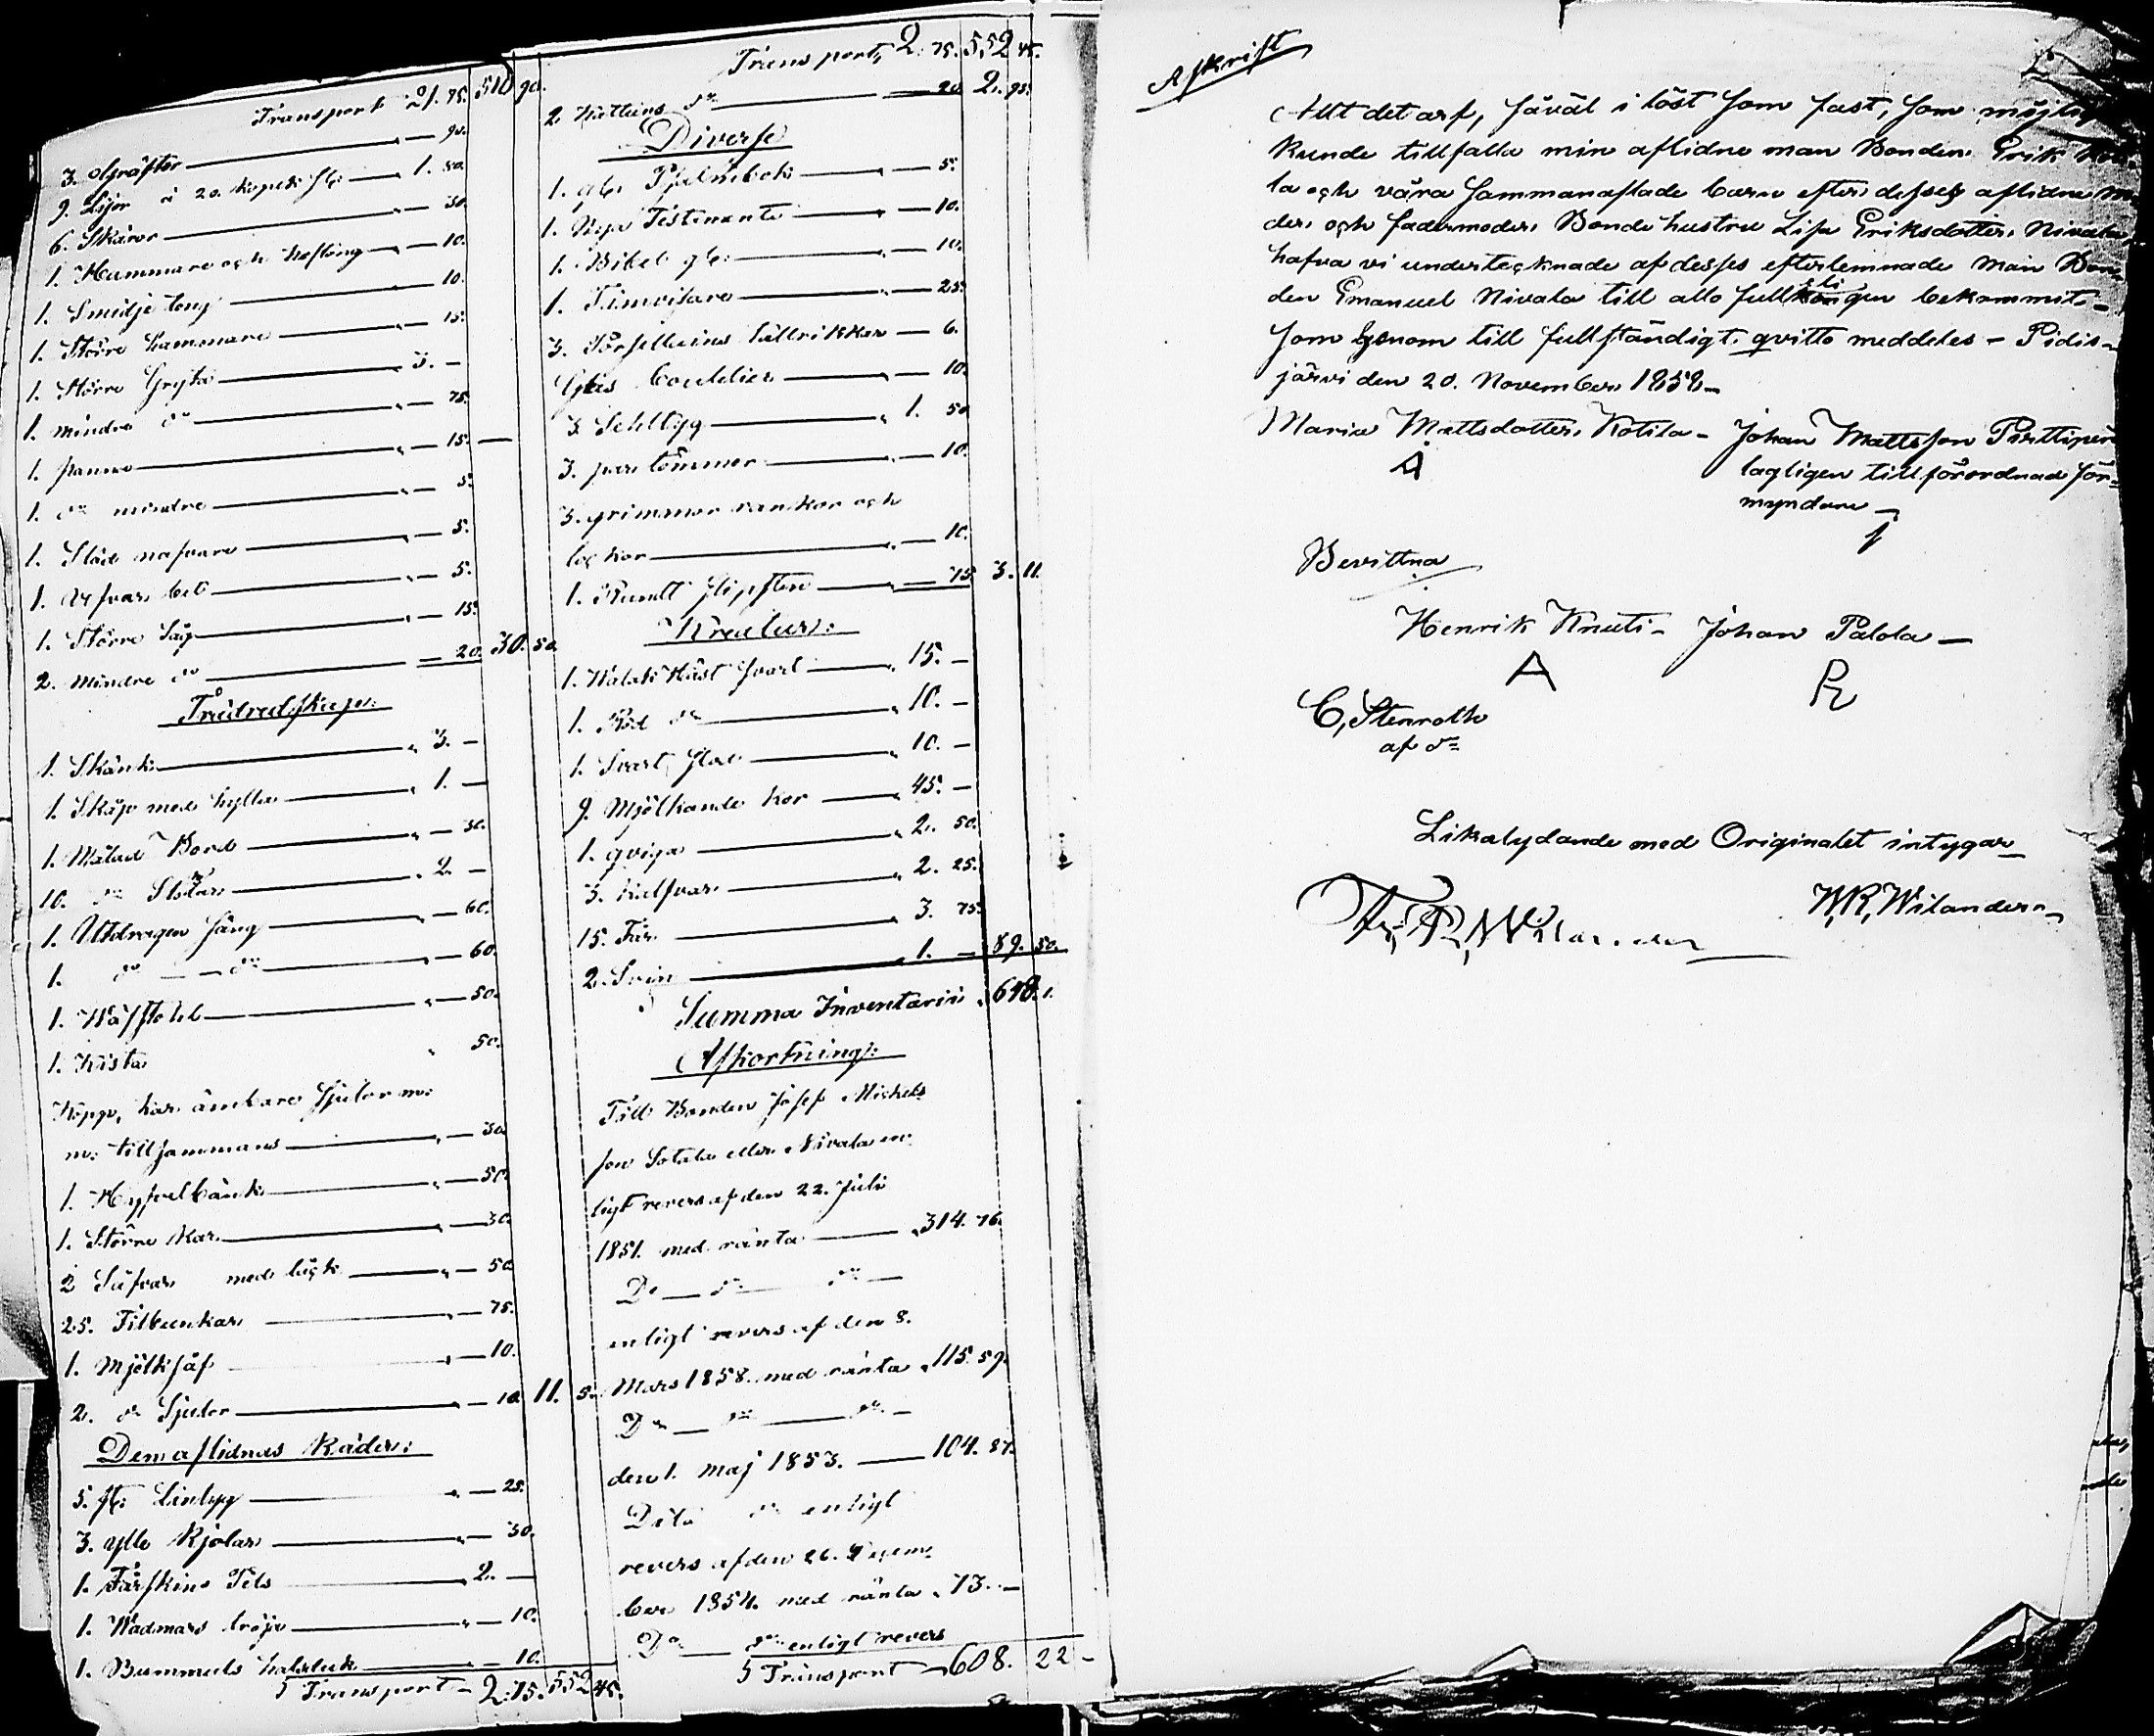 Transport 21. 75. 510 90.
3. Ogräftor — 90.
9. Lijor à 20. kopek st: — 1. 80.
6. Skäror — 30.
1. Hammare och hoftång — 10.
1. Smidje tong — 10.
1. Större hammare — 15.
1. Större Gryta — 3. —
1. mindre do — 75.
1. panna — 15. —
1. do mindre — 5.
1. Släd nafvare — 5.
1. Nafvar bet — 5.
1. Större Såg — 15.
2. mindre do — 20. 30. 50.
Trädredskap:
1. Skänk — 3. —
1. Skåp med hylla — 1. —
1. Målad Bord — 30.
10. do Stolar — 2. —
1. Utdragen säng — 60.
1. do — do — 60.
1. Wäfstohl — 50.
1. Kista 50.
Koppe, kar ämbare Sjular m:
m: tillsammans — 30.
1. Hyfvelbänk — 50.
1. Större Kar — 30.
2 Såfvar med läck — 50.
25. Tilbunkar — 75.
1. Mjölksåf — 10.
2. do Sjular — 10. 11. 5.
Dem aflidnas Kläder:
5. st: Lintyg — 25.
3. ylle Kjolar — 30.
1. Fårskins Päls — 2. —
1. Wadmars tröja — 10.
1. Bummuls halsduk — 10.
Transport — 2. 75. 552 45.
Transport, 2. 75. 552 45.
2. Kattuns do — 20. 2. 95.
Diverse
1. gl: Psalmbok — 5.
1. Nya Testamente — 10.
1. Bibel gl: — 10.
1. Timvisare — 25.
3. Porselleins tallrikkar — 6.
Glas bouteljer — 10.
3. Sehltyg — 1. 50
3. par tömmor — 10.
3. grimmor rankor och
lockor — 10.
1. Rundt slipsten — 75. 3. 11.
Kreatur:
1. Walak Häst svart — 15. —
1. Röd do — 10. —
1. Svart stod — 10. —
9. Mjölkande Kor — 45. —
1. qviga — 2. 50.
3. kalfvar — 2. 25.
15. Får — 3. 75.
2. Svin — 1. — 89. 50.
Summa Inventarii 648. 1.
Afkortning:
Till Bonden Josef Mickels
son Sotala eller Nivala en
ligt revers af den 22. Juli
1851. med ränta — 314. 76.
Do — do — do —
enligt revers af den 8.
Mars 1858. med ränta 115. 59.
Do — do — do —
den 1. maj 1853. — 104. 87.
Dito do enligt
revers af den 26. Decem:
ber 1854. med ränta 73. —
Do — do enligt revers
Transport — 608. 22 —
Afskrift
Allt det arf, såväl i löst som fast, som möjlig
kunde tillfalla min aflidne man Bonden Erik
la och våra sammanaflade barn efter dess aflidne
der och fadermoder Bonde hustru Lisa Eriksdotter Nivala,
hafva vi undertecknade af desses efterlemnade man Bon
den Emanuel Nivala till alla fullkomligen bekommit —
Som genom till fullständigt qvitto meddeles — Pidis-
järvi den 20. November 1858 —
Maria Mattsdotter Kotila — Johan Mattsson Pirttiper
lagligen tillförordnad för-
myndare —
Bevittna
Henrik Knuti — Johan Palola —
A
C, Stenroth
af do
Likalydande med Originalet intygar
W,R, Wilander